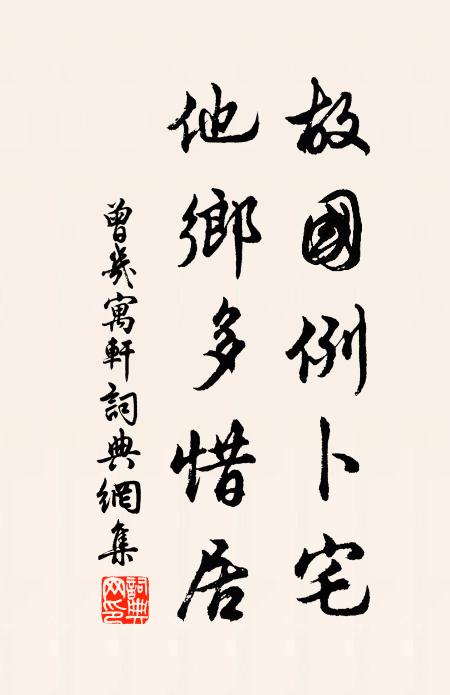 故國例卜宅
他鄉多惜居
曾幾寓軒詞典網集